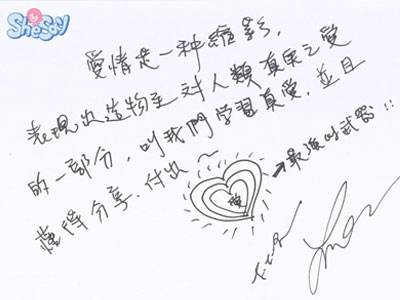 SheSay
愛情是一种縮影,
表現出造物主对人類真实之愛
的一部分,叫我們学習真愛,並且
懂得分享、付出~
愛
→最強的武器!!